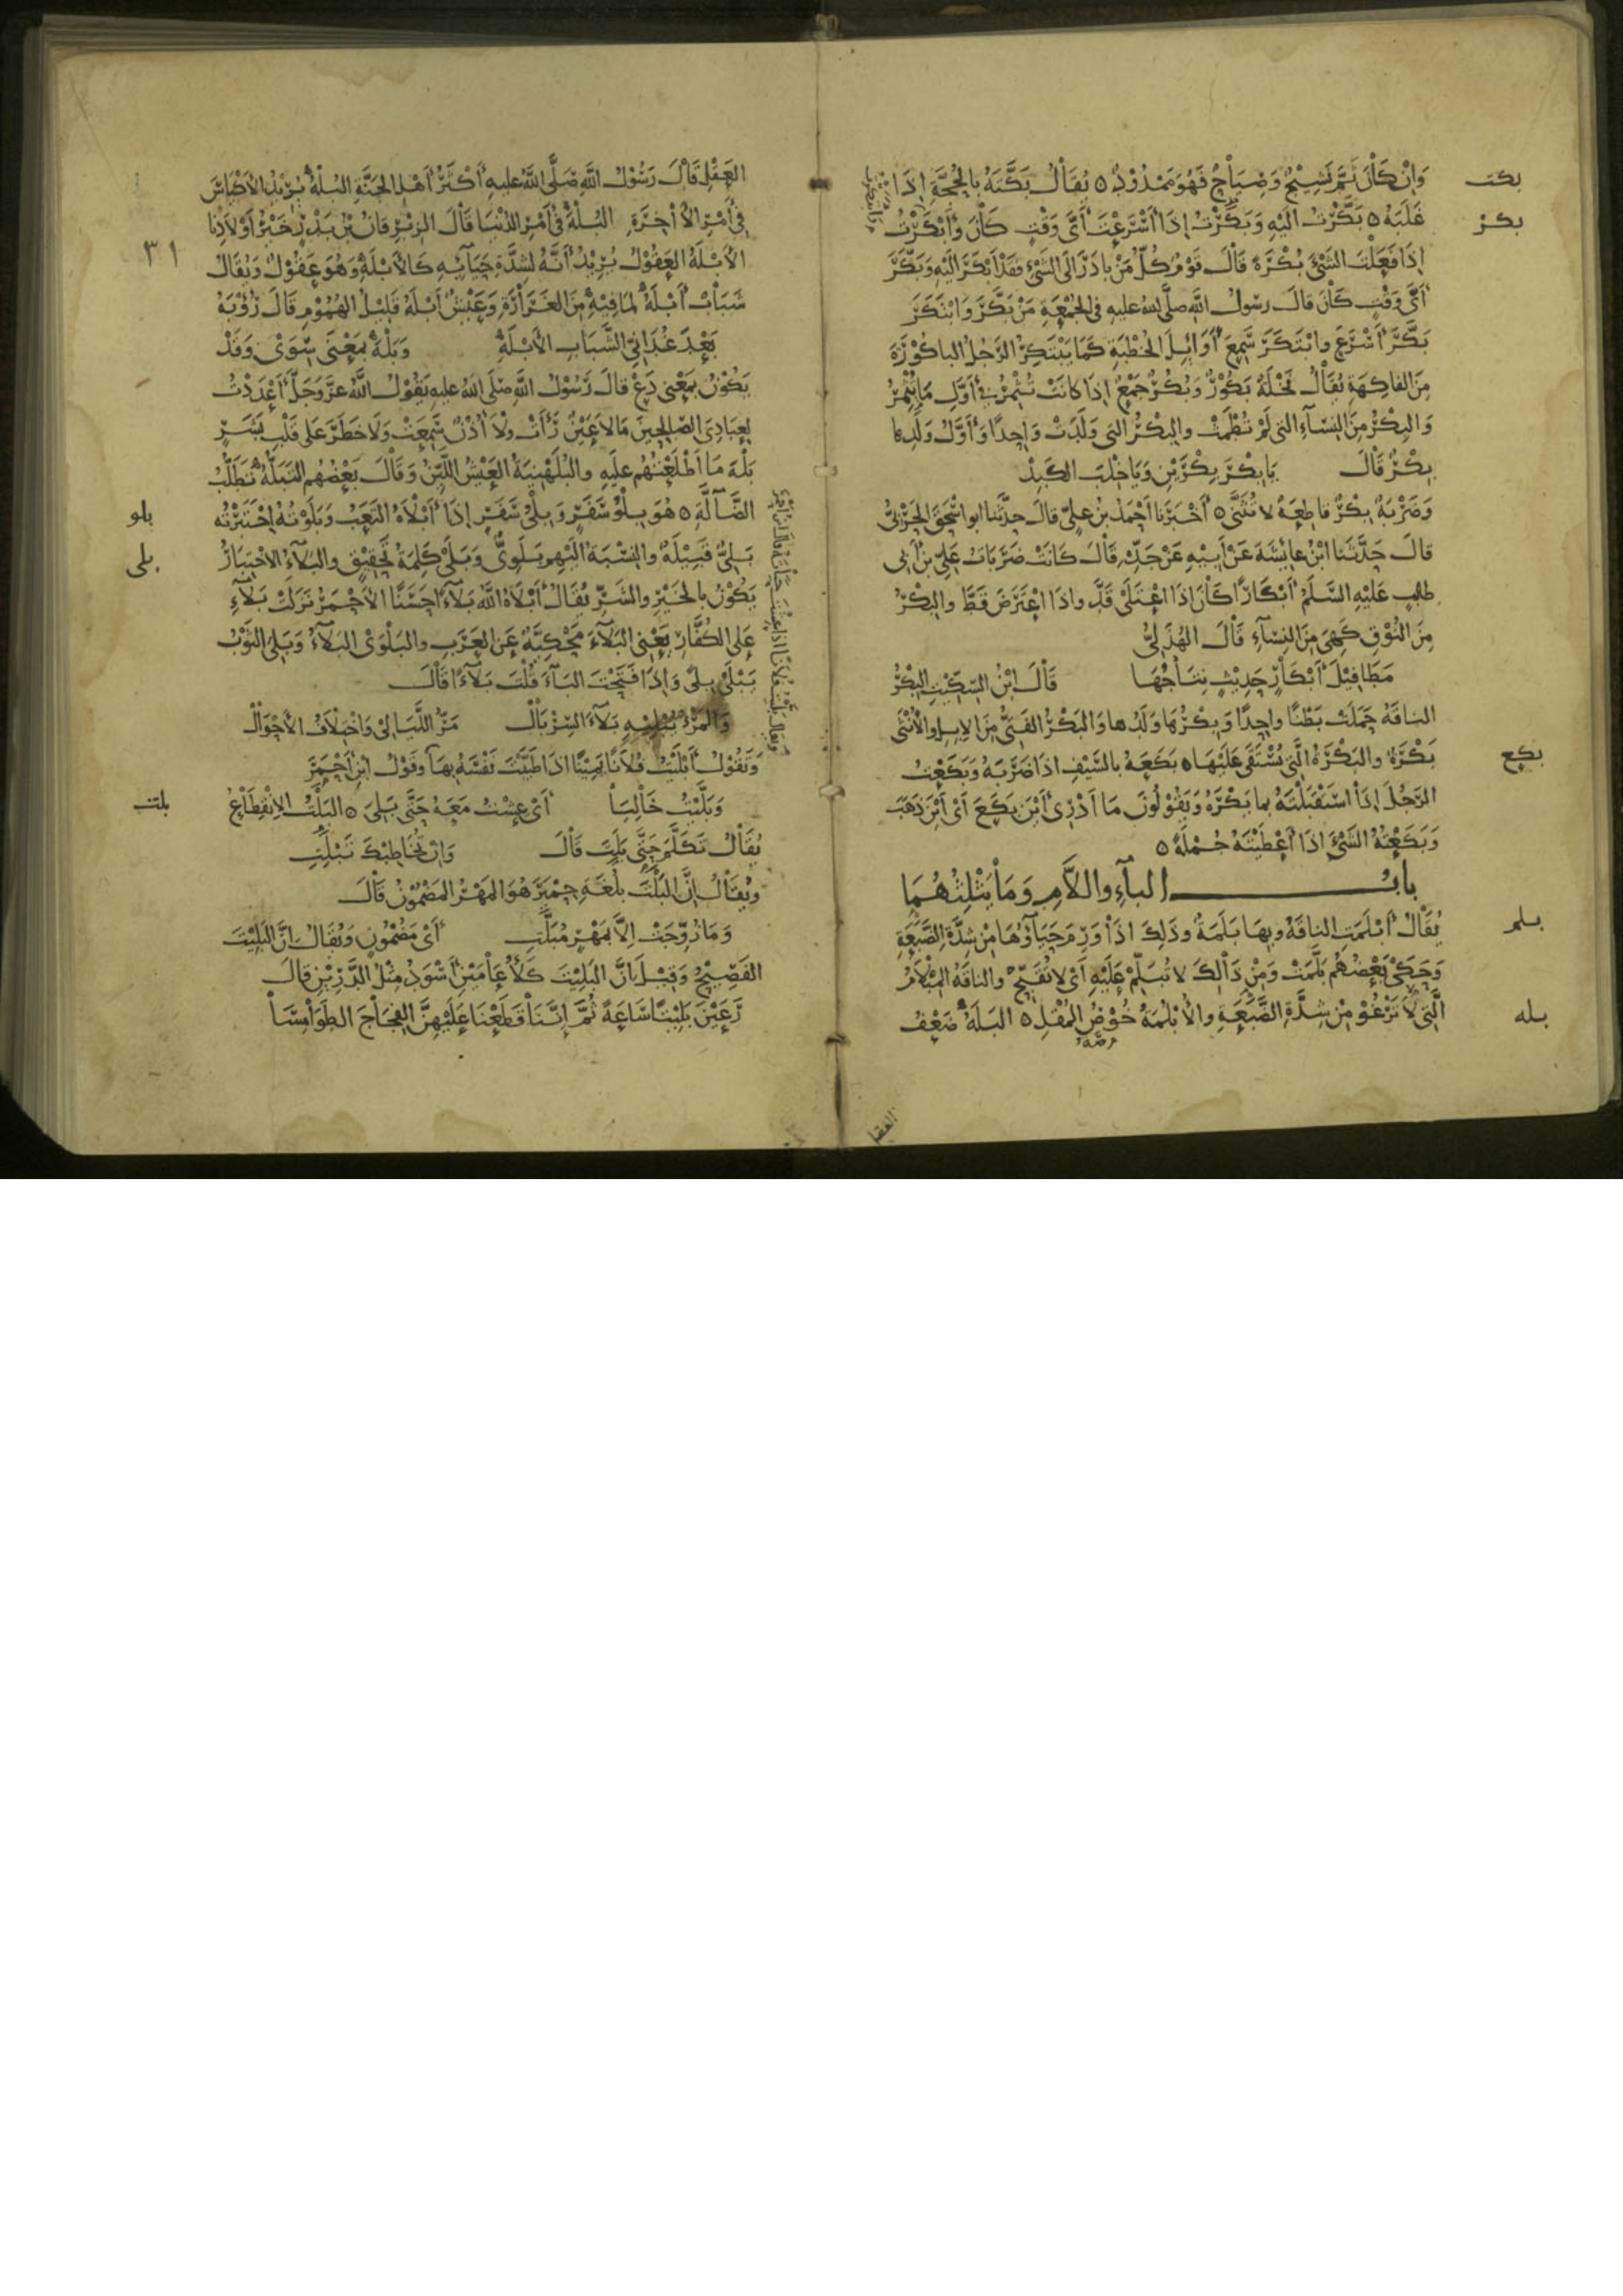 بكت
وَإنْ كَانَ ثَمَّ نَشِيْجٌ وَصِيَاحٌ فَهُوَ مَمْدُوْدٌ ٥ يُقَالُ بَكَّتَهُ بِالحُجَّةِ إِذَا
بكر
غَلَبَهُ ٥ بَكَّرْتُ الَيْهِ وَبَكَرْتُ إذَا أَسْرَعْتَ أَىَّ وَقْتٍ كَانَ وَابْتَكَرْتُ
إذَا فَعَلْتَ الشَّىْءَ بُكْرَةً قَالَ قَوْمٌ كُلُّ مَنْ بَادَرَ الَى الشَّىْءِ فَقَدْ أَبْكَرَ الَيْهِ وَبَكَّرَ
أَىَّ وَقْتٍ كَانَ قالَ رسُولُ اللَّهِ صلَّى اللهُ عليهِ فى الجُمُعَةِ مَنْ بَكَّرَ وَابْتَكَرَ
بَكَّرَ أَسْرَعَ وابْتَكَرَ سَمِعَ أَوَائِلَ الخُطْبَةِ كَمَا يَبْتَكِرُ الرَّجُلُ الباكُوْرَةَ
مِنَ الفاكِهَةِ يُقَالُ نَخْلَةٌ بَكُوْرٌ وَبُكُرٌ جَمْعٌ إذَا كانَتْ تُثْمِرُ فى أَوَّلِ مَا يُثْمِرُ
وَالبِكْرُ مِنَ النِسَآءِ التى لَمْ تُطْمَثْ والبِكْرُ التى وَلَدَتْ وَاحِدًا وَأَوَّلُ وَلَدِها
بِكْرٌ قَالَ يَا بِكْرَ بِكْرَيْنِ وَيَا خِلْبَ الكَبِدْ
وَضَرْبَةٌ بِكْرٌ قاطِعَةٌ لا تُثَنَّى ٥ أَخْبَرَنا أَحْمَدُ بنُ علىٍّ قالَ حدَّثَنا ابو اسْحقَ الحَرْبىُّ
قالَ حَدَّثَنَا ابْنُ عايْشَةَ عَنْ أَبيْهِ عَنْ جَدِّهِ قَالَ كَانَتْ ضَرَبَاتُ عَلِىِّ بنِ أَبى
طالبٍ عَلَيْهِ السَّلَمُ أَبْكَارًا كَانَ اذَا اعْتَلَى قَدَّ واذَا اعْتَرَضَ قَطَّ والبِكْرُ
مِنَ النُوْقِ كَهِىَ مِنَ النِسَآءِ قَالَ الهُذَلِىُّ
مَطَافِيْلَ أَبْكَارٍ حَدِيْثٍ نِتَاجُهَا قَالَ ابْنُ السِّكِّيْتِ البِكْرُ
الناقَةُ حَمَلَتْ بَطْنًا واحِدًا وَبِكْرُهَا وَلَدُها وَالبَكْرُ الفَتِىُّ مِنَ الإِبِلِ والأُنْثَى
بكع
بَكْرَةٌ والبَكْرَةُ الَّتى يُسْتَقَى عَلَيْهَا ٥ بَكَعَهُ بالسَّيْفِ اذَا ضَرَبَهُ وَبَكَعْتُ
الرَّجُلَ إذَا اسْتَقْبَلْتَهُ بما يَكْرَهُ وَيَقُوْلُونَ مَا أَدْرِى أَيْنَ بَكَعَ أَىْ أَيْنَ ذَهَبَ
وَبَكَعْتُهُ الشَّىْءَ إِذَا أَعْطَيْتَهُ جُمْلَةً ٥
بابُ البآءِ واللاَّمِ وَمَا يَثْلِثُهُمَا
بلم
يُقَالُ أَبْلَمَتِ الناقَةُ وبِهَا بَلَمَةٌ وذَلِكَ اذَا وَرِمَ حَيَآؤُهَا مِنْ شِدَّةِ الضَّبَعَةِ
وَحَكَى بَعْضُهُم بَلَّمَتْ وَمِنْ ذَالِكَ لا تُبَلِّمْ عَلَيْهِ أَىْ لا تُقَبِّحْ والناقَةُ المِبْلاَمُ
بله
الَّتى لاَ تَرْغُوْ مِنْ شِدَّةِ الضَّبَعَةِ والأُبْلُمَةُ خُوْصُ المُقْلِ ٥ البَلَهُ ضَعْفُ
العقل
العَقْلِ قَالَ رَسُوْلُ اللَّهِ صَلَّى اللَّهُ عليهِ أَكْثَرُ أَهْلِ الجَنَّةِ البُلْهُ يُرِيْدُ الأَكْيَاسَ
فى أَمْرِ الآخِرَةِ البُلْهَ فى أَمْرِ الدُنْيَا قَالَ الزِبْرِقانُ بْنُ بَدْرٍ خَيْرُ أَوْلادِنا
٣١
الأَبْلَهُ العَقُوْلُ يُرِيْدُ أَنَّهُ لشدَّةِ حَيَآئِهِ كَالأَبْلَهِ وَهُوَ عَقُوْلٌ وَيُقَالُ
شَبَابٌ أَبْلَهُ لمَا فيْهِ مِنَ الغَرَارَةِ وَعَيْشٌ أَبْلَهُ قَلِيْلُ الهُمُوْمِ قَالَ رُؤْبَةُ
بَعْدَ غُدَانِىِّ الشَّبَابِ الأَبْلَهِ وَبَلْهَ بِمَعْنَى سِوَى وَقَدْ
يَكُوْنُ بِمَعْنى دَعْ قالَ رَسُوْلُ اللَّهِ صَلَى اللَّهُ عليهِ يَقُوْلُ اللَّهُ عزَّ وَجَلَّ أَعْدَدْتُ
لِعِبَادِىَ الصّالِحِينَ مَالاَ عَيْنٌ رَأَتْ ولاَ أُذُنٌ سَمِعَتْ وَلاَ خَطَرَ على قَلْبِ بَشَرٍ
بَلْهَ مَا أَطْلَعْتُهُم عليْهِ والبُلَهْنِيَةُ العَيْشُ اللَّيِّنُ وَقَالَ بَعْضُهُم التَبَلُّهُ تَطَلُّبُ
بلو
الضَّآلَّةِ ٥ هُوَ بِلْوُ سَفَرٍ وَبِلْىُ سَفَرٍ إذَا أَبْلاَهُ التَعَبُ وَبَلَوْتُهُ إخْتَبَرْتُه
بلى
بَلِىُّ قَبِيْلَةٌ والنِسْبَةُ الَيْهِم بَلَوِىٌّ وَبَلَى كَلِمَةُ تَحْقِيْقٍ والبَلآءُ الاخْتِبَارُ
يَكُوْنُ بِالخَيْرِ والشَرِّ يُقَالُ أَبْلاَهُ اللَّهُ بَلآءً حَسَنًا الأَحْمَرُ نَزَلَتْ بَلاَءِ
عَلى الكُفَّارِ يَعْنِى البَلآءَ يَحْكِيْهِ عَنِ العَرَبِ والبَلْوَى البَلآءُ وَبَلِىَ الثَوْبُ
يَبْلَى بِلًى وَإِذَا فَتَحْتَ البَآءَ قُلْتَ بَلآءً قَالَ
وَالمَرْءُ يُبْلِيْهِ بَلآءَ السِّرْبَالْ مَرُّ اللَّيَالِىْ وَاخْتِلاَفُ الأَحْوَالْ
وَتَقُوْلُ أَبْلَيْتُ فُلاَنًا يَمِيْنًا اذَا طَيَّبْتَ نَفْسَهُ بِهَا وقَوْلُ ابْنِ أَحْمَرَ
بلت
وَبَلَّيْتُ خَالِيَا أَىْ عِشْتُ مَعَهُ حَتَّى بَلِىَ ٥ البَلْتُ الاِنْقِطَاعُ
يُقَالُ تَكَلَّمَ حَتَّى بَلِتَ قَالَ وَانْ تُخَاطِبْكَ تَبْلِتِ
ويُقَالُ إنَّ البَلْتَ بِلُغَةِ حِمْيَرَ هُوَ المَهْرُ المَضْمُوْنُ قَالَ
وَمَا زُوِّجَتْ اِلاَّ بِمَهْرٍ مُبَلَّتِ أَىْ مَضْمُونٍ وَيُقَالُ انَّ البَلِيْتَ
الفَصِيْحُ وَقِيْلَ انَّ البَلِيْتَ كَلأُ عَامَيْنِ أَسْوَدُ مِثْلُ الدَّرِيْنِ قالَ
رَعَيْنَ بَلِيْتًا سَاعَةً ثُمَّ إِنَّنَا قَطَعْنَا عَلَيْهِنَّ الفِجَاجَ الطَوَامِسَا